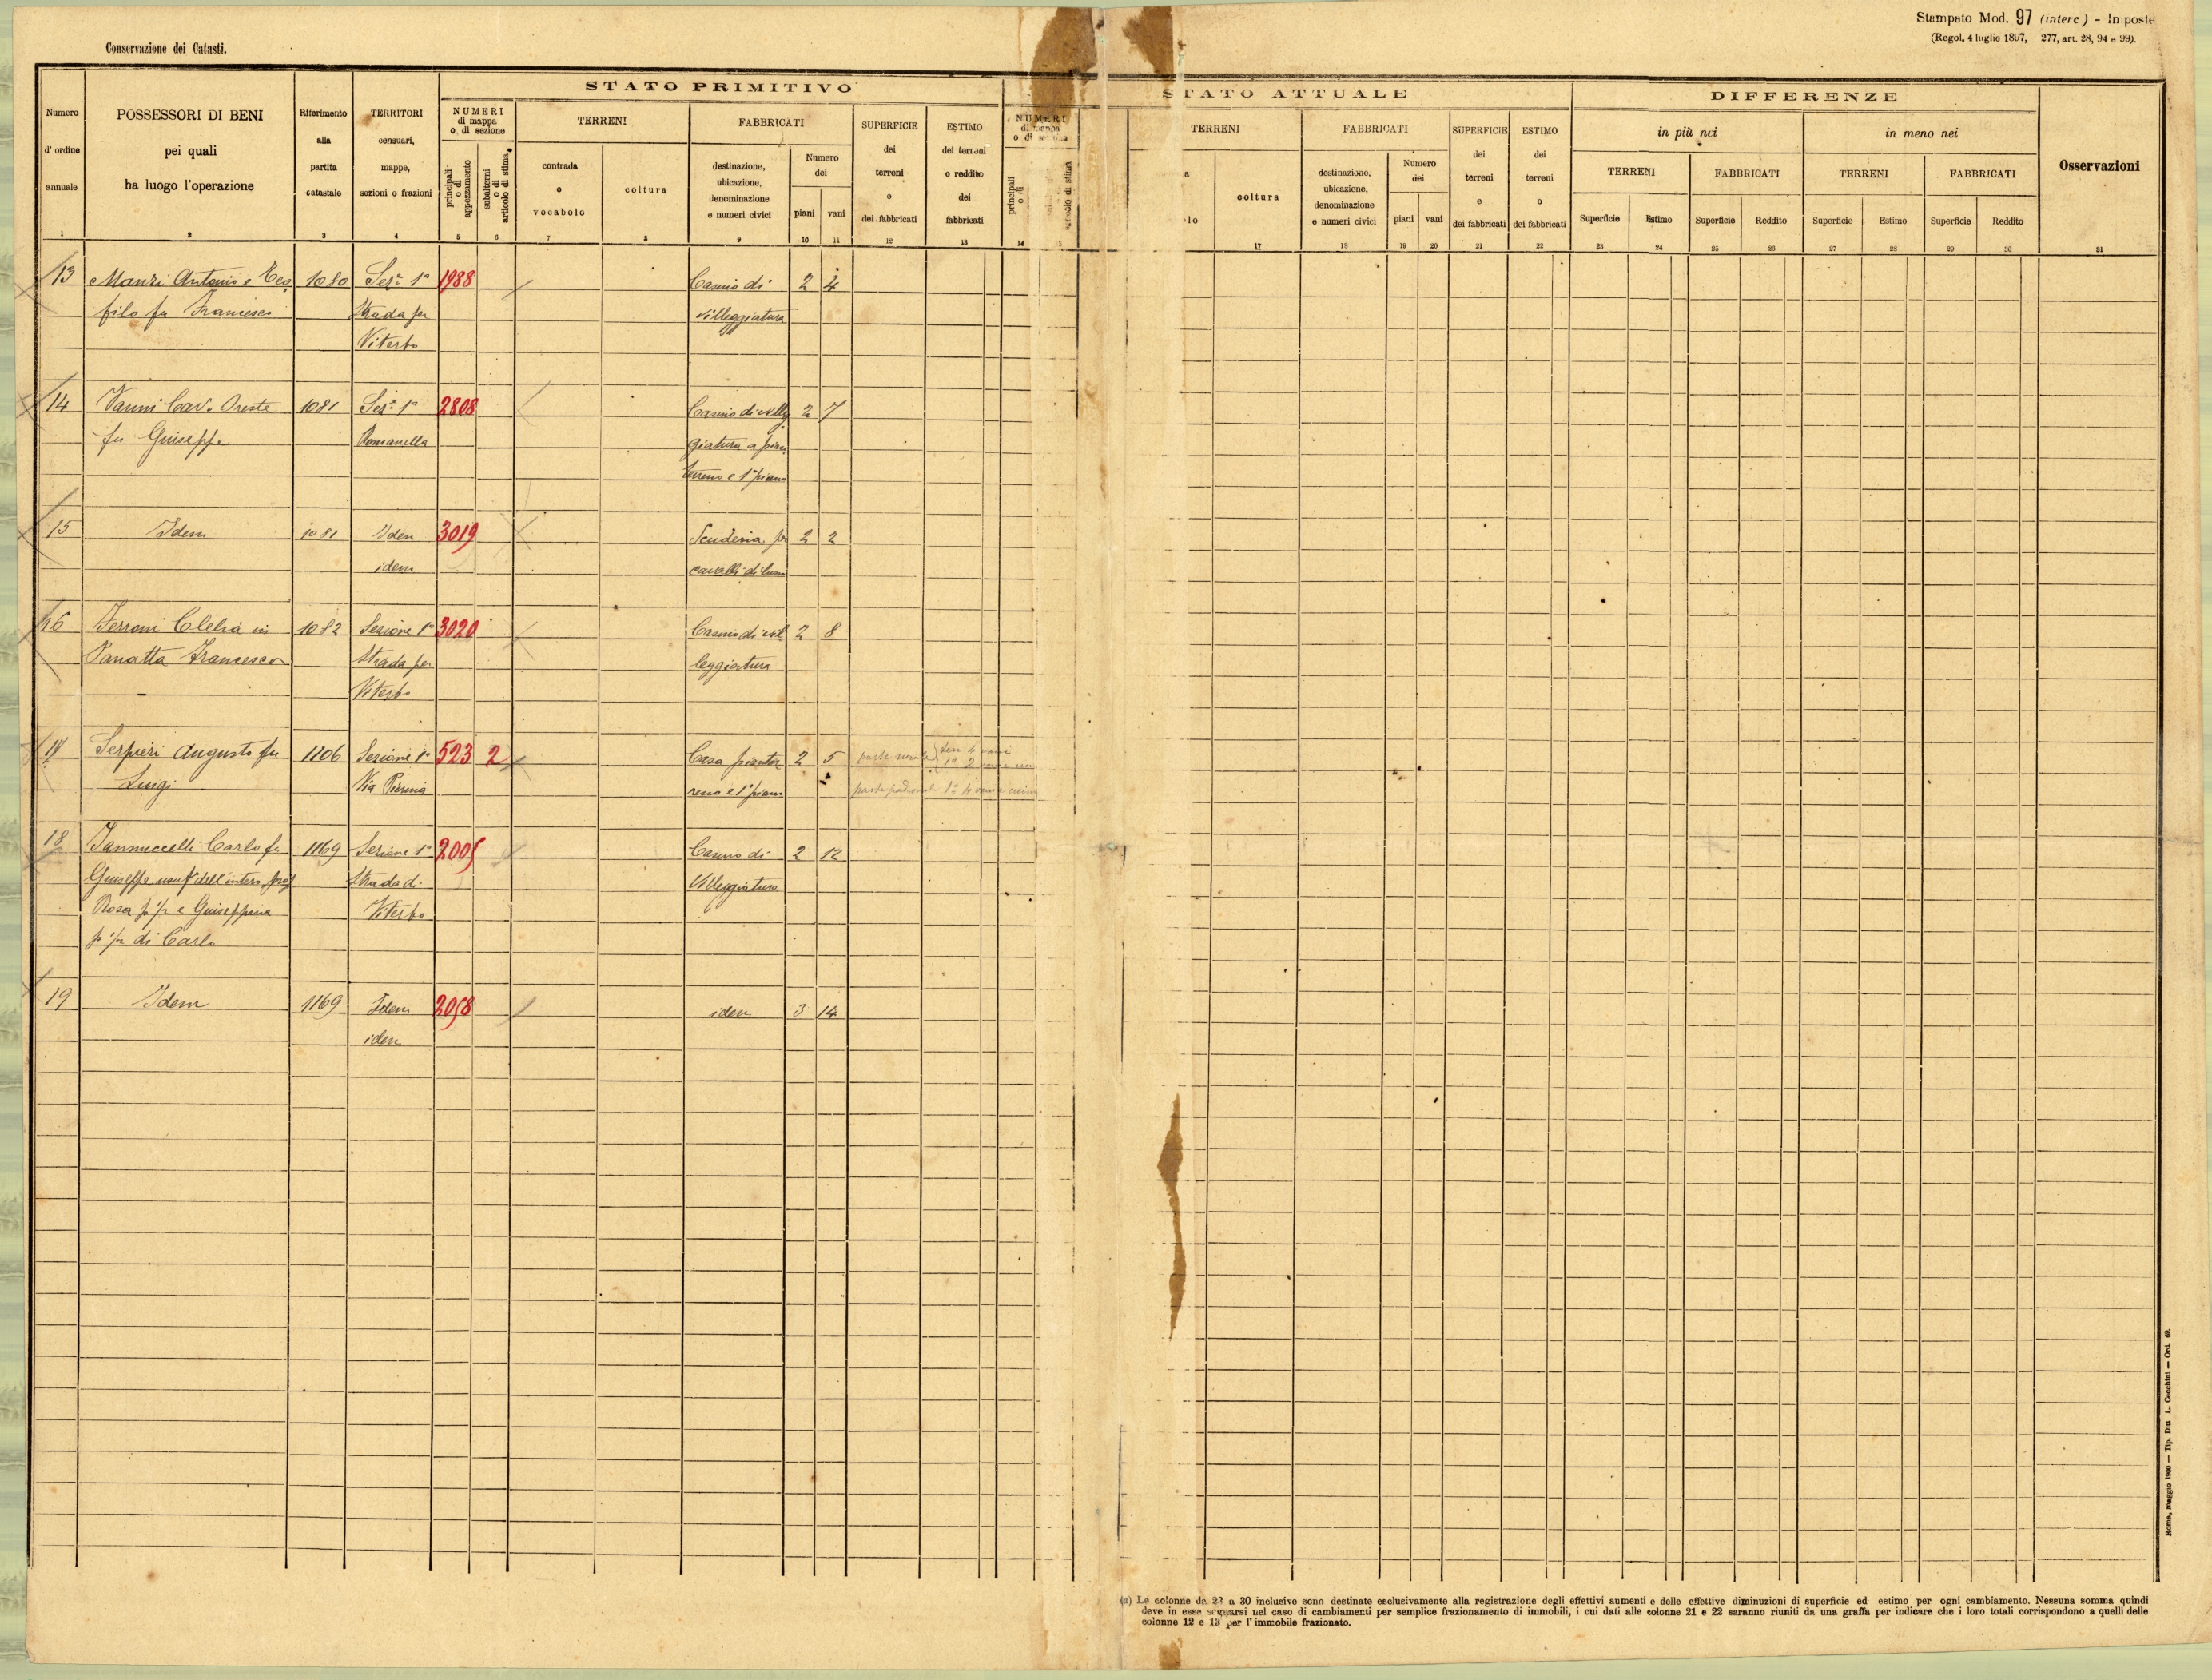 Stampato Mod. 97 (interc) - Imposte
(Regol. 4 luglio 1897, 277, art. 28, 94 e 99).
Conservazione dei Catasti.
STATO PRIMITIVO
STATO ATTUALE
DIFFERENZE
Numero d' ordine annuale
POSSESSORI DI BENI
pei quali
ha luogo l'operazione
Riferimento alla partita catastale
TERRITORI censuari, mappe, sezioni o frazioni
NUMERI di mappa o di sezione
principali o di appezzamento
subalterni o di articolo di stima
TERRENI
contrada o vocabolo
coltura
FABBRICATI
destinazione, ubicazione, denominazione e numeri civici
Numero dei
piani
vani
SUPERFICIE dei terreni o dei fabbricati
ESTIMO dei terreni o reddito dei fabbricati
NUMERI di mappa
principali o di
TERRENI
coltura
FABBRICATI
destinazione, ubicazione, denominazione e numeri civici
Numero dei
piani
vani
SUPERFICIE dei terreni e dei fabbricati
ESTIMO dei terreni o dei fabbricati
in più nei
in meno nei
TERRENI
FABBRICATI
TERRENI
FABBRICATI
Superficie
Estimo
Superficie
Reddito
Superficie
Estimo
Superficie
Reddito
Osservazioni
1 2 3 4 5 6 7 8 9 10 11 12 13 14 17 18 19 20 21 22 23 24 25 26 27 28 29 20 31
13 Manzi Antonio e Teo 1080 Sez.e 1a 1988 Casino di 2 4
filo fu Francesco Strada per villeggiatura
Viterbo
14 Vanni Cav. Oreste 1081 Sez.e 1a 2808 Casino di villeg 2 7
fu Giuseppe Romanella giatura a pian
terreno e 1° piano
15 Idem 1081 Idem 3019 Scuderia per 2 2
idem cavalli di lusso
16 Ferroni Clelia in 1082 Sezione 1a 3020 Casino di vil 2 8
Panatta Francesco Strada per leggiatura
Viterbo
17 Serpieri Augusto fu 1106 Sezione 1a 523 2 Casa pianter 2 5
Luigi Via reno e 1° piano
18 Iannuccelli Carlo fu 1169 Sezione 1a 2005 Casino di 2 12
Giuseppe usuf° dell'intero prop Strada di Villeggiatura
Rosa p 1/2 e Giuseppina Viterbo
p 1/2 di Carlo
19 Idem 1169 Idem 2058 idem 3 14
idem
(a) Le colonne da 23 a 30 inclusive sono destinate esclusivamente alla registrazione degli effettivi aumenti e delle effettive diminuzioni di superficie ed estimo per ogni cambiamento. Nessuna somma quindi
deve in esse segnarsi nel caso di cambiamenti per semplice frazionamento di immobili, i cui dati alle colonne 21 e 22 saranno riuniti da una graffa per indicare che i loro totali corrispondono a quelli delle
colonne 12 e 13 per l'immobile frazionato.
Roma, maggio 1900 — Tip. Ditta L. Cecchini — Ord. 69.